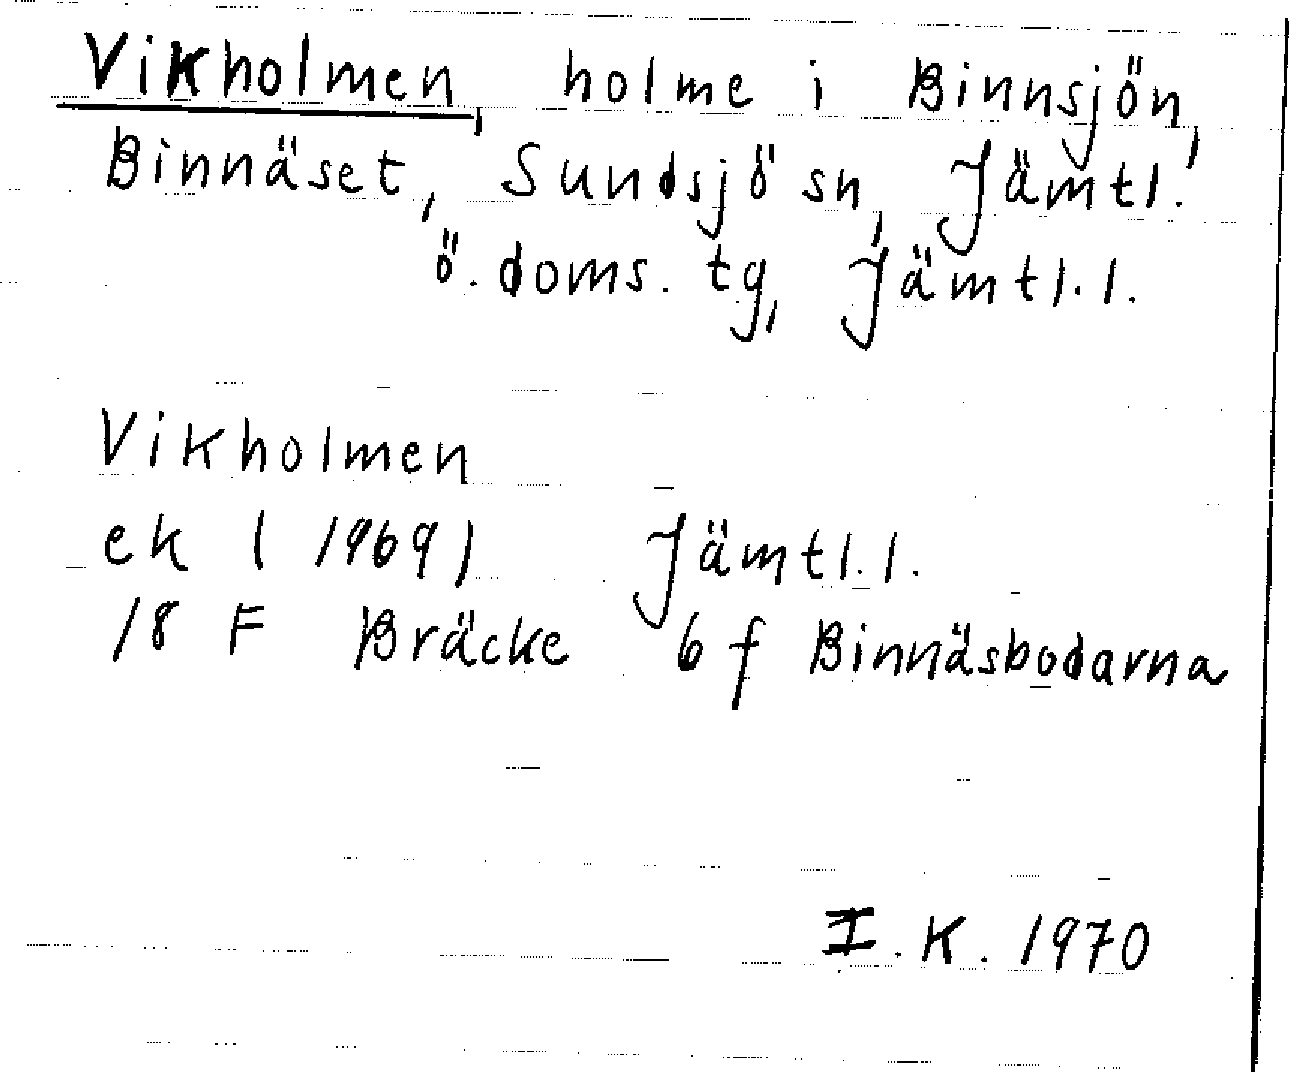 Vikholmen, holme i Binnsjön,
Binnäset, Sundsjö sn, Jämtl.
ö. doms. tg, Jämtl. l.
Vikholmen
ek (1969) Jämtl. l.
18 F Bräcke 6 f Binnäsbodarna
I. K. 1970